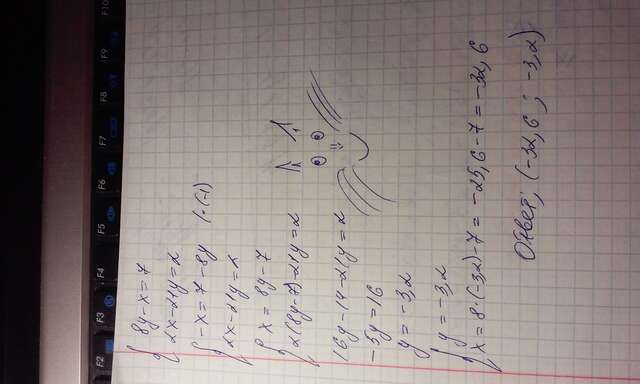 8y-x=7
2x-21y=2
-x=7-8y |·(-1)
2x-21y=2
x=8y-7
2(8y-7)-21y=2
16y-14-21y=2
-5y=16
y=-3,2
y=-3,2
x=8·(-3,2)-7=-25,6-7=-32,6
Ответ; (-32,6 ; -3,2)
F2
F3
F4
F5
F6
F7
F8
F9
F10